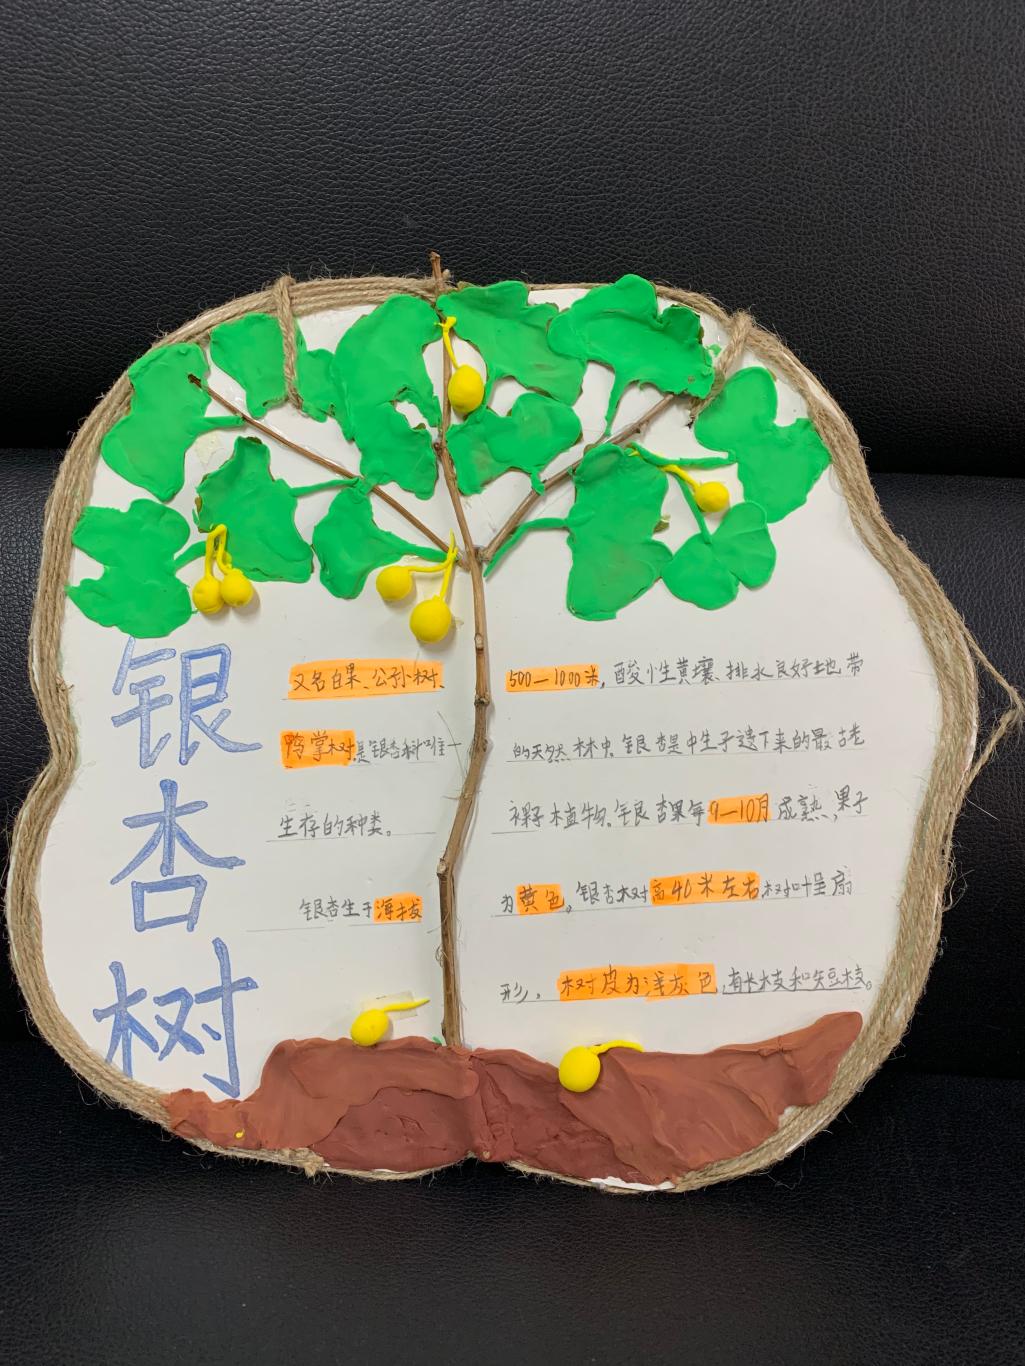 银杏树
又名白果、公孙树、
鸭掌树是银杏科唯一
生存的种类。
银杏生于海拔
500—1000米,酸性黄壤、排水良好地带
的天然林中,银杏是中生子遗下来的最古老
裸子植物。银杏果每9—10月成熟,果子
为黄色。银杏树高40米左右,树叶呈扇
形。树皮为浅灰色,有长枝和短枝。